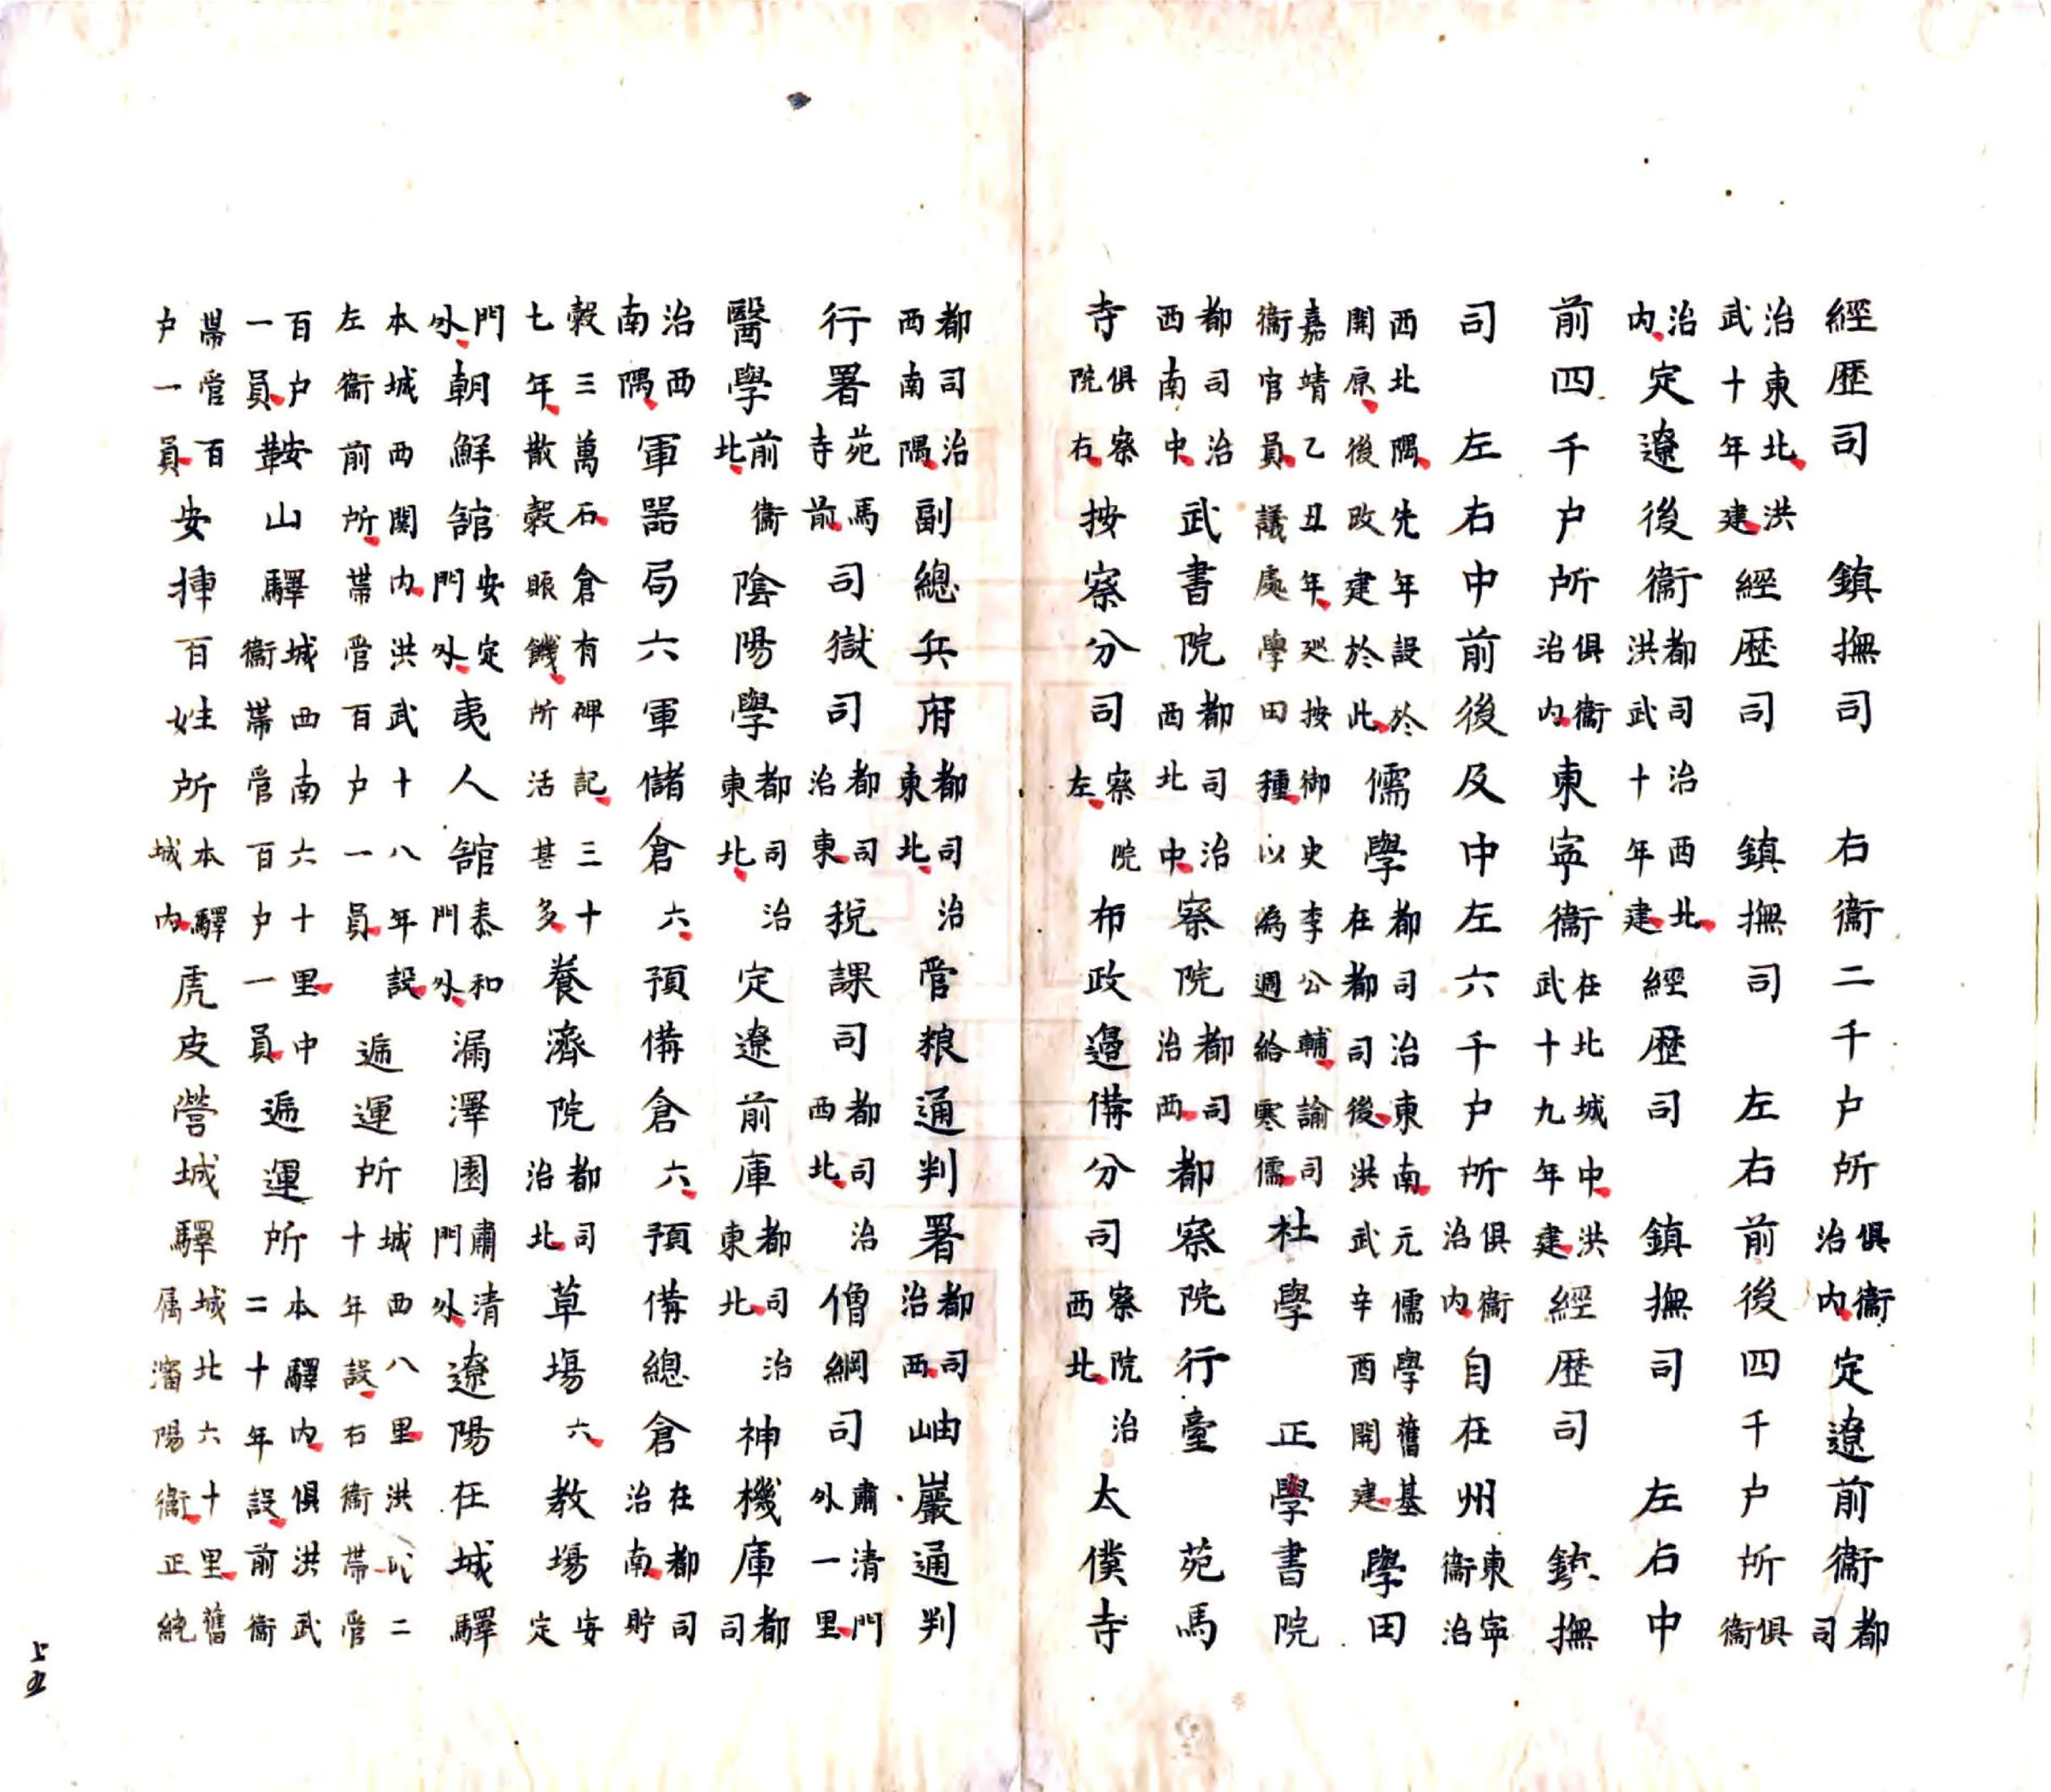 經歷司　鎮撫司　右衞二千户所俱衞治内定遼前衞都司
治東北洪武十年建經歷司　鎮撫司　左右前後四千户所俱衞
治内定遼後衞都司治西北洪武十年建經歷司　鎮撫司　左右中
前四千户所俱衞治内東寧衞在北城中洪武十九年建經歷司　鎮撫
司　左右中前後及中左六千户所俱衞治内自在州東寧衞治
西北隅先年設於開原後改建於此儒學都司治東南元儒學舊基在都司後洪武辛酉開建學田
嘉靖乙丑年廵按御史李公輔諭司衞官員議處學田種以為週給寒儒社學　正學書院
都司治西南中武書院都司治西北中察院都司治西都察院行臺　苑馬
寺俱察院右按察分司察院左布政邉備分司察院治西北太僕寺
都司治西南隅副總兵府都司治東北管粮通判署都司治西岫巖通判
行署苑馬寺前司獄司都司治東稅課司都司治西北僧綱司肅清門外一里
醫學前衞北陰陽學都司治東北定遼前庫都司治東北神機庫都司
治西南隅軍器局六軍儲倉六預備倉六預備總倉在都司治南貯
穀三萬石倉有碑記三十七年散穀賑饑所活甚多養濟院都司治北草塲六教塲安定
門外朝鮮舘安定門外夷人舘泰和門外漏澤園肅清門外遼陽在城驛
本城西関内洪武十八年設左衞前所帶管百户一員遞運所城西八里洪武二十年設右衞帶管
百户一員鞍山驛城西南六十里中衞帶管百户一員遞運所本驛内俱洪武二十年設前衞
帶管百户一員安揷百姓所本驛城内虎皮營城驛城北六十里舊屬瀋陽衞正統
七五